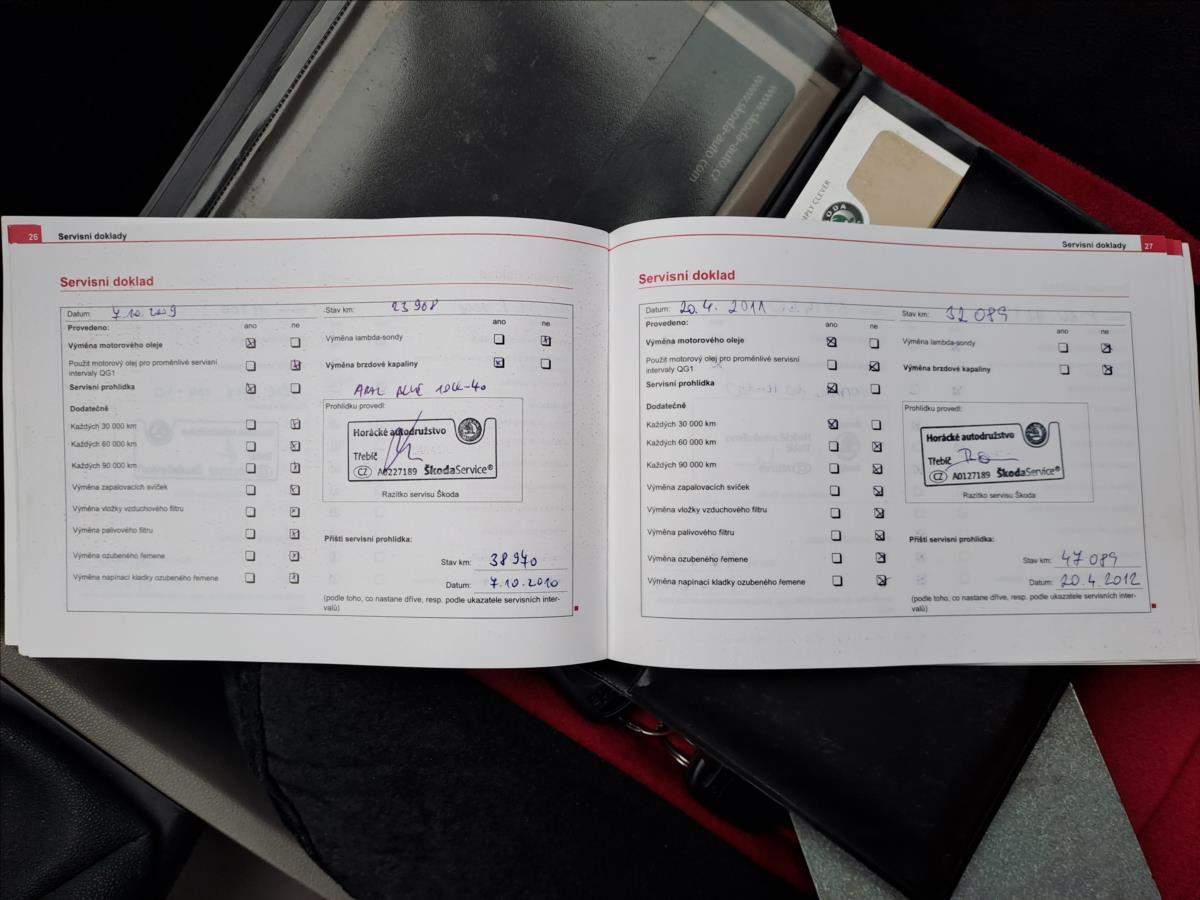 www.skoda-auto.cz
www.skoda-auto.com
SIMPLY CLEVER
26 Servisní doklady
Servisní doklad
Datum: 7.10.2009 Stav km: 23908
Provedeno: ano ne ano ne
Výměna motorového oleje
Výměna lambda-sondy
Použit motorový olej pro proměnlivé servisní
intervaly QG1
Výměna brzdové kapaliny
Servisní prohlídka
10W-40
Dodatečně
Prohlídku provedl:
Každých 30 000 km
Každých 60 000 km
Každých 90 000 km
Výměna zapalovacích svíček
Výměna vložky vzduchového filtru
Výměna palivového filtru
Výměna ozubeného řemene
Výměna napínací kladky ozubeného řemene
Horácké autodružstvo
Třebíč
CZ A0227189 ŠkodaService®
Razítko servisu Škoda
Příští servisní prohlídka:
Stav km: 38970
Datum: 7.10.2010
(podle toho, co nastane dříve, resp. podle ukazatele servisních inter-
valů)
Servisní doklady 27
Servisní doklad
Datum: 20.4.2011 Stav km: 32089
Provedeno: ano ne ano ne
Výměna motorového oleje
Výměna lambda-sondy
Použit motorový olej pro proměnlivé servisní
intervaly QG1
Výměna brzdové kapaliny
Servisní prohlídka
Dodatečně
Prohlídku provedl:
Každých 30 000 km
Každých 60 000 km
Každých 90 000 km
Výměna zapalovacích svíček
Výměna vložky vzduchového filtru
Výměna palivového filtru
Výměna ozubeného řemene
Výměna napínací kladky ozubeného řemene
Horácké autodružstvo
Třebíč
CZ A0127189 ŠkodaService®
Razítko servisu Škoda
Příští servisní prohlídka:
Stav km: 47089
Datum: 20.4.2012
(podle toho, co nastane dříve, resp. podle ukazatele servisních inter-
valů)